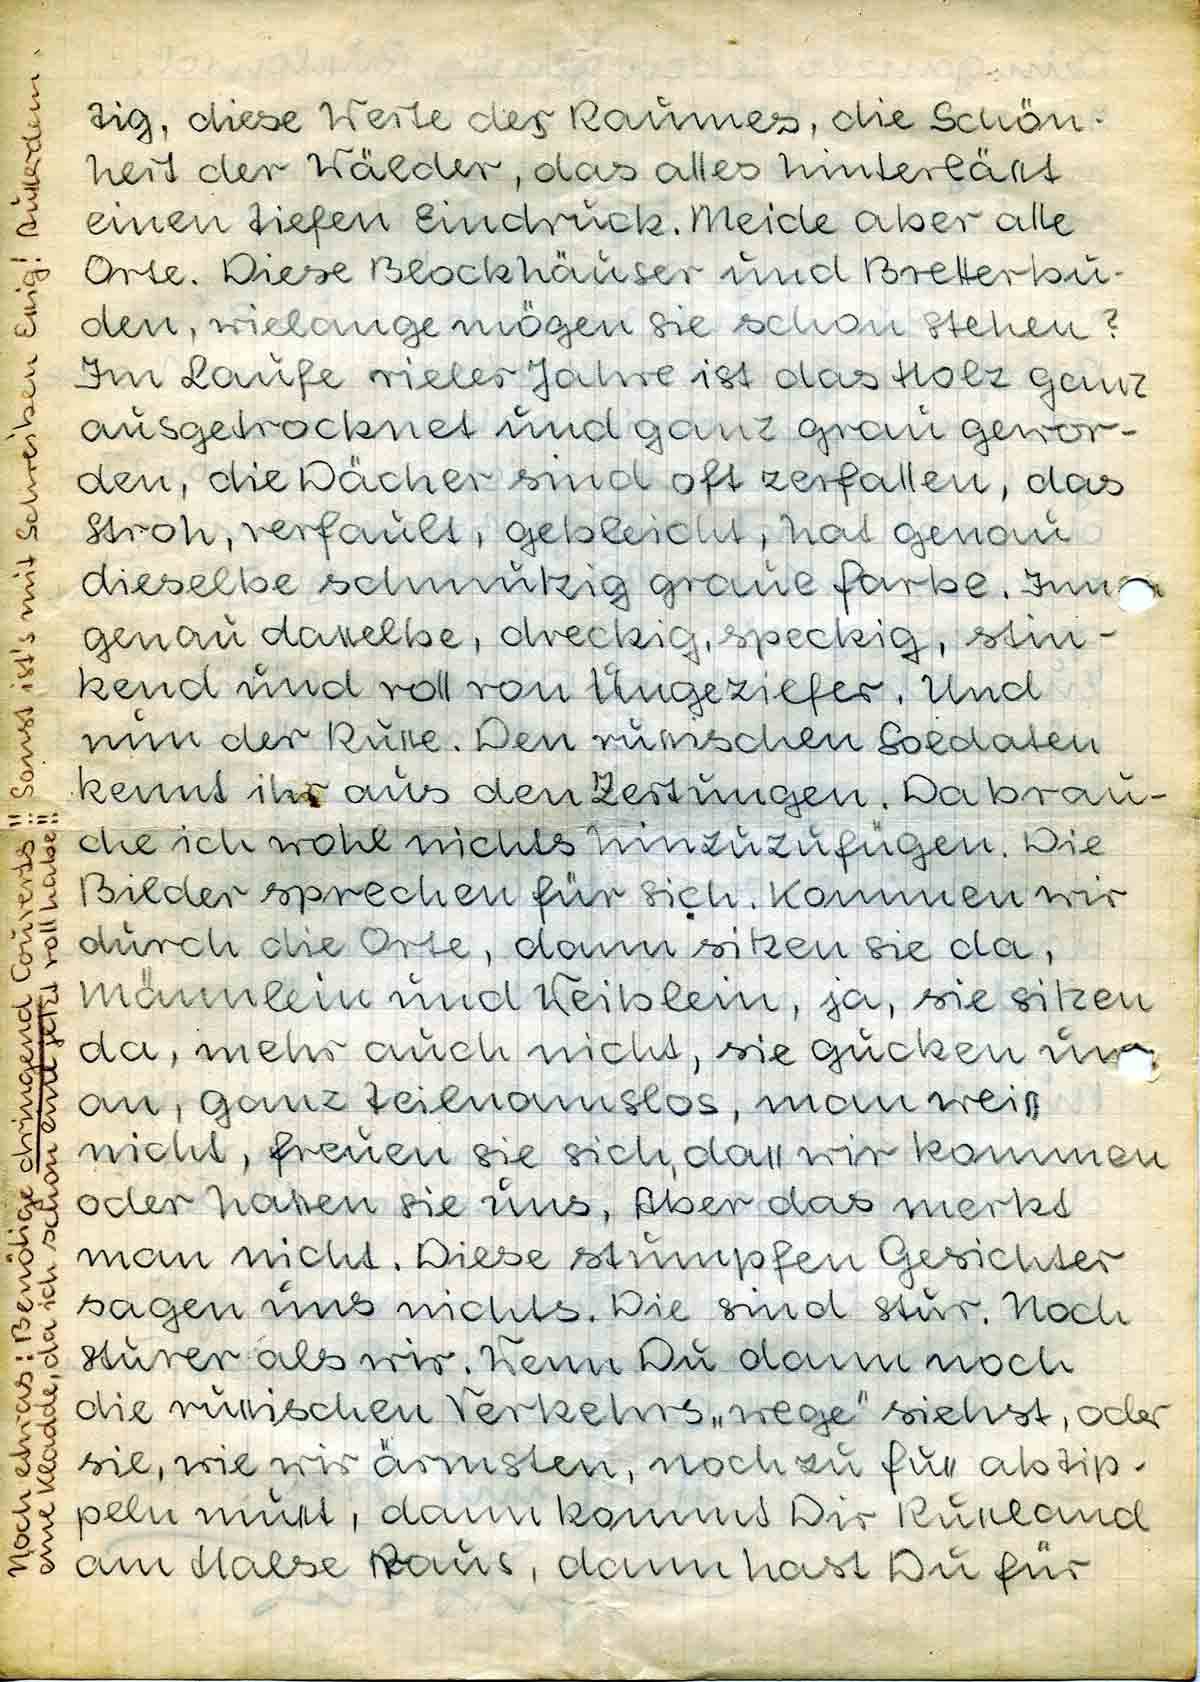 tig, diese Werte des Raumes, die Schön-
heit der Wälder, das alles hinterläßt
einen tiefen Eindruck. Meide aber alle
Orte. Diese Blockhäuser und Bretterbu-
den, wielange mögen sie schon stehen?
Im Laufe vieler Jahre ist das Holz ganz
ausgetrocknet und ganz grau gewor-
den, die Dächer sind oft zerfallen, das
Stroh, verfault, gebleicht, hat genau
dieselbe schmutzig graue Farbe. Inn
genau dasselbe, dreckig, speckig, stin-
kend und voll von Ungeziefer. Und
nun der Russe. Den russischen Soldaten
kennt ihr aus den Zeitungen. Da brau-
che ich wohl nichts hinzuzufügen. Die
Bilder sprechen für sich. Kommen wir
durch die Orte, dann sitzen sie da,
Männlein und Weiblein, ja, sie sitzen
da, mehr auch nicht, sie gucken un
an, ganz teilnamslos, man weiß
nicht, freuen sie sich, dass wir kommen
oder hassen sie uns, Aber das merkt
man nicht. Diese stumpfen Gesichter
sagen uns nichts. Die sind stur. Noch
sturer als wir. Wenn Du dann noch
die russischen Verkehrs„wege“ siehst, oder
sie, wie wir ärmsten, noch zu fuß abtip-
peln mußt, dann kommt Dir Rußland
am Halse Raus, dann hast Du für
Noch etwas: Benötige dringend Couverts!! Sonst ist's mit Schreiben Essig! Außerdem
eine Kladde, da ich schon eine jetzt vollhabe!!